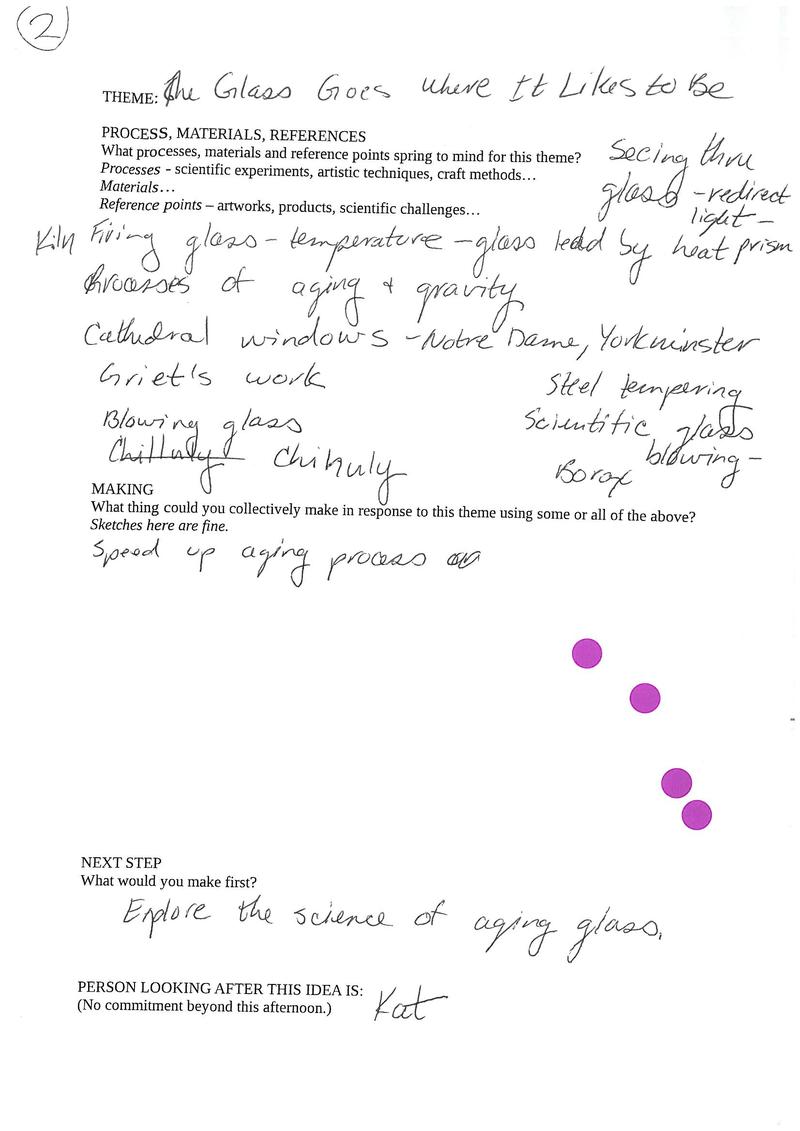 2
THEME: The Glass Goes Where It Likes to Be
PROCESS, MATERIALS, REFERENCES
What processes, materials and reference points spring to mind for this theme?
Processes - scientific experiments, artistic techniques, craft methods…
Materials…
Reference points – artworks, products, scientific challenges…
Seeing thru
glass - redirect
light -
prism
Kiln Firing glass - temperature - glass lead by heat
Processes of aging & gravity
Cathedral windows - Notre Dame, Yorkminster
Griet's work
Steel tempering
Blowing glass
Scientific glass
blowing -
Chilluly Chihuly
Borox
MAKING
What thing could you collectively make in response to this theme using some or all of the above?
Sketches here are fine.
Speed up aging process
NEXT STEP
What would you make first?
Explore the science of aging glass.
PERSON LOOKING AFTER THIS IDEA IS:
(No commitment beyond this afternoon.) Kat